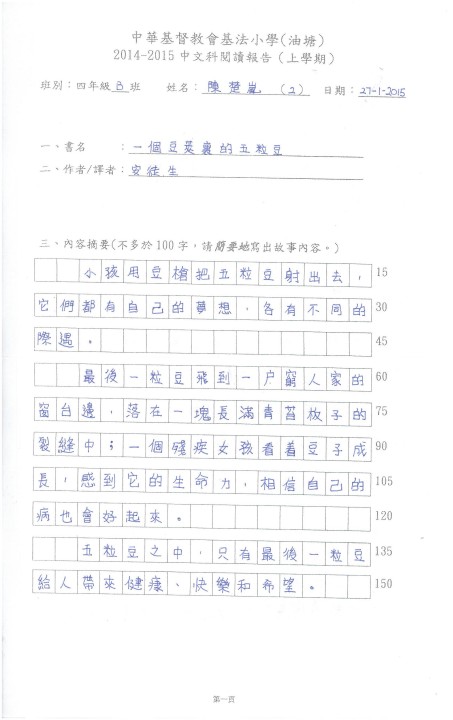 中華基督教會基法小學(油塘)
2014-2015 中文科閱讀報告(上學期)
班別:四年級B班 姓名:陳楚嵐 (2) 日期:27-1-2015
一、書名 :一個豆莢裏的五粒豆
二、作者/譯者:安徒生
三、內容摘要(不多於 100 字,請簡要地寫出故事內容。)
小孩用豆槍把五粒豆射出去, 15
它們都有自己的夢想,各有不同的 30
際遇。 45
最後一粒豆飛到一户窮人家的 60
窗台邊,落在一塊長滿青苔板子的 75
裂縫中;一個殘疾女孩看着豆子成 90
長,感到它的生命力,相信自己的 105
病也會好起來。 120
五粒豆之中,只有最後一粒豆 135
給人帶來健康、快樂和希望。 150
第一頁